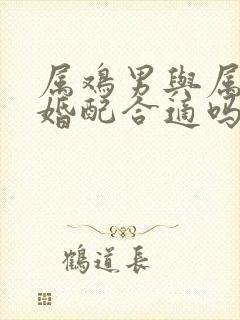 属鸡男與属
婚配合適吗
鶴道長